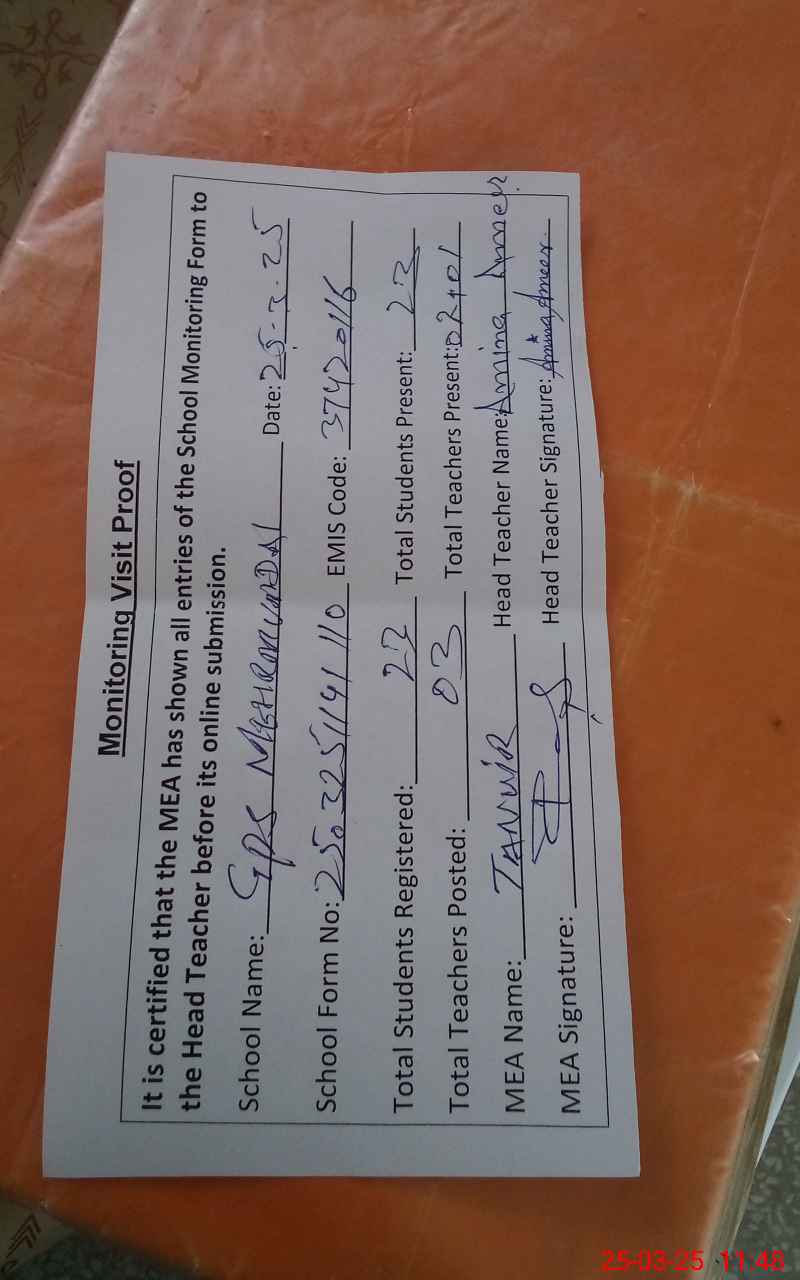 Monitoring Visit Proof
It is certified that the MEA has shown all entries of the School Monitoring Form to
the Head Teacher before its online submission.
School Name: GPS Date: 25-3-25
School Form No: 250325114110 EMIS Code: 37420116
Total Students Registered: Total Students Present:
Total Teachers Posted: 03 Total Teachers Present: 02+01
MEA Name: TANWIR Head Teacher Name: Amina Ameer
MEA Signature: Head Teacher Signature: Amina Ameer
25-03-25 11:48